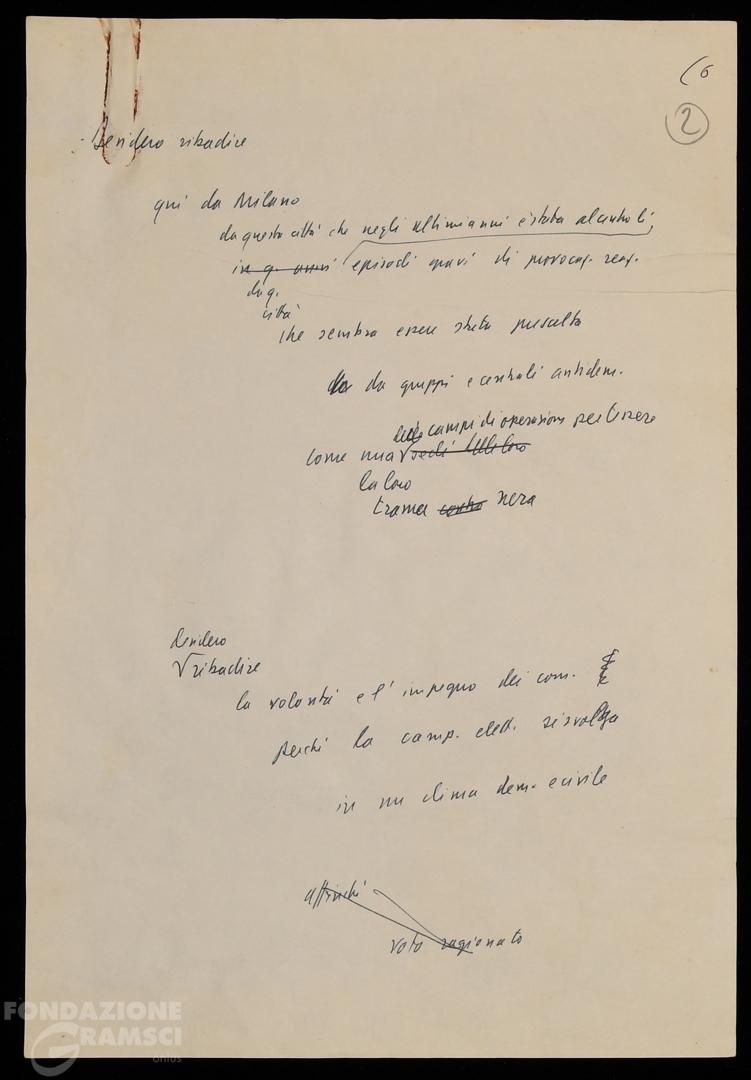 (6
2
- Desidero ribadire
qui da Milano
da questa città che negli ultimi anni è stata al centro di
in q. anni episodi gravi di provocaz. reaz.
da q.
città
che sembra essere stata prescelta
da da gruppi e centrali antidem.
delle campi di operazioni per tessere
come una sedi delle loro
la loro
trama contro nera
desidero
ribadire
la volontà e l'impegno dei com.
perché la camp. elett. si svolga
in un clima dem. e civile
affinché
voto ragionato
FONDAZIONE
GRAMSCI
onlus